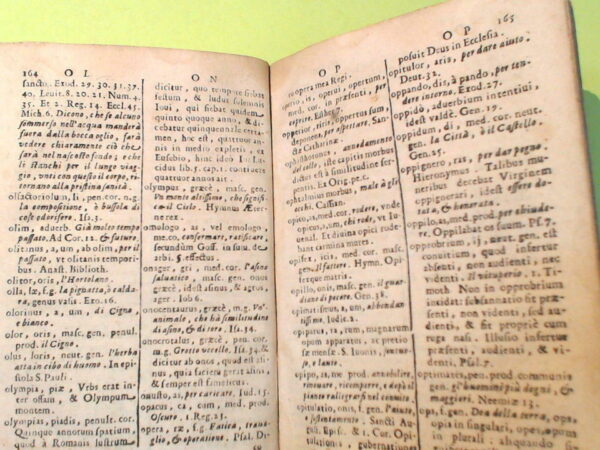 164
O L
O N
sancto. Exod. 29. 30. 31. 37.
40. Leuit. 8. 20. 21. Num. 4.
35. Et 2. Reg. 14. Eccl. 45.
Mich. 6. Dicono, che se alcuno
sommerso nell'acqua manderà
fuora dalla bocca oglio, sarà
vedere chiaramente ciò che
sarà nel nascosto fundo; e che
li stanchi per il lungo viag-
gio, unti con questo il corpo, ri-
tornano alla pristina sanità.
olfactorium, li, pen. cor. n.g.
la compositione, ò bussola di
cose odorifere. Isa. 3.
olim, aduerb. Già molto tempo
passato. Ad Cor. 12. & futuro.
olitinus, a, um, ab olim, per il
passato, vt olitanis tempori-
bus. Anast. Biblioth.
olitor, oris, l'Hortolano.
olla, æ, f. g. La pignatta, ò calda-
ra, genus vasis. Exo. 16.
olorinus, a, um, di Cigno
e bianco.
olor, oris, masc. gen. penul.
prod. il Cigno.
olus, loris, neut. gen. l'herba
atta in cibo di huomo. In epi-
stola S. Pauli.
olympia, piæ, Vrbs erat in-
ter ossam, & Olympum
montem.
olympias, piadis, penult. cor.
Quinque annorum spatium,
quod à Romanis lustrum
dicitur, quo tempore
festum, & ludus solemnis
Ioui, qui fiebat quidem
quinto quoque anno, & di-
cebatur quinquenne certa-
men, hoc est, quattuor an-
nis in medio expletis, ex
Eusebio, hinc ideo Io. Lu-
cidus lib. 3. cap. 1. continere
quattuor annos ait.
olympus, græcè, masc. gen.
Vn monte altissimo, che signifi-
ca il Cielo. Hymnus Æter-
ne rex.
omologo, as, vel emolo-
me. co. confermare, ratificare,
secundum Goff. in sum. de
arbi. §. effectus.
onager, gri, med. cor. l'asino
saluatico, masc. gen. onus
idest græcè asinus, & agros
ager. Iob 6.
onocentaurus, græcè, m. g. Vn'
animale, che hà similitudine
di asino, & di toro. Isa. 34.
onocrotalus, græcè, pen. cor.
m. g. Grosso vccello. Isa. 34. &
dicitur ab onos, quod est asi-
nus, quia faciem gerit asini,
& semper est famelicus.
onusto, as, per caricare. Iud. 15.
opacus, ca, cum, med. prod.
Oscuro, 1. Reg. 21.
opera, ræ, f. g. Fatica, trava-
glio, & operatione. Psal. Di-
O P
O P
165
opera mea Regi.
operio, is, operui, opertum,
med. cor. in præsenti, per
coprire.
opperior, riris,
deponente, per aspettare. Sanctæ Catharinæ.
ophisthotonus, annodamento
del collo, iste capitis morbus
dictus est à similitudine ser-
pentis. Ex Orig.
ophtalmus morbus, male à gli
occhi. Cassian.
opicus, ca, med. cor. rudis, vt Iu-
uenal. Et diuina opici rode-
bant carmina mures.
opifex, icis, med. cor. masc.
gen. Il fattore. Hymn. Opi-
ferque matris.
opilio, onis, masc. gen. il guar-
diano di pecore. Gen. 38.
opimus, a, um, abbondan-
tissimo. Iudic. 3.
opiparus, ra, rum, magnarum
opum apparatus, ac pretio-
sæ mensæ. S. Iouinis, sontuo-
so, e lauto.
opipo, as, me. prod. annobilire,
rimurare, ricomporre, e dopo il
piacere rallegrarsi in conuito.
opitulatio, onis, f. gen. l'aiuto,
e sostentamento. Sancti Au-
gust. & 1. Cor. 12. Opi-
tulationes, gubernationes
posuit Deus in Ecclesia.
opitulor, aris, per dare aiuto.
Deut. 32.
oppando, dis, à pando, per ten-
dere intorno. Exod. 27.
oppidò, aduerbium intentiui,
idest valdè. Gen. 19.
oppidum, di, med. cor. neut.
gen. la Città, ò il Castello.
Gen. 25.
oppignero, ras, per dar pegno.
Hieronymus. Talibus mu-
neribus decebat Virginem
oppignerari, idest essere dota-
ta, & honorata.
oppilatus, med. prod. per chiude-
re. Oppilabat os suum. Ps. 7.
opprobrium, ij, neut. gen. est
conuitium, quod infertur
absenti, non audienti, nec
videnti. Il vituperio. 1. Ti-
moth. Non in opprobrium
incidat: subsannatio fit præ-
senti, non videnti, sed
audienti, & fit propriè cum
ruga nasi. Illusio infertur
præsenti, audienti, & vi-
denti. Psal. 7.
optimates, med. prod. communis
gen. gl'huomini più degni, &
maggiori. Neemiæ 13.
ops, opis, f. gen. Dea della terra, opis,
opi in singulari, opes, opum
in plurali: aliquando